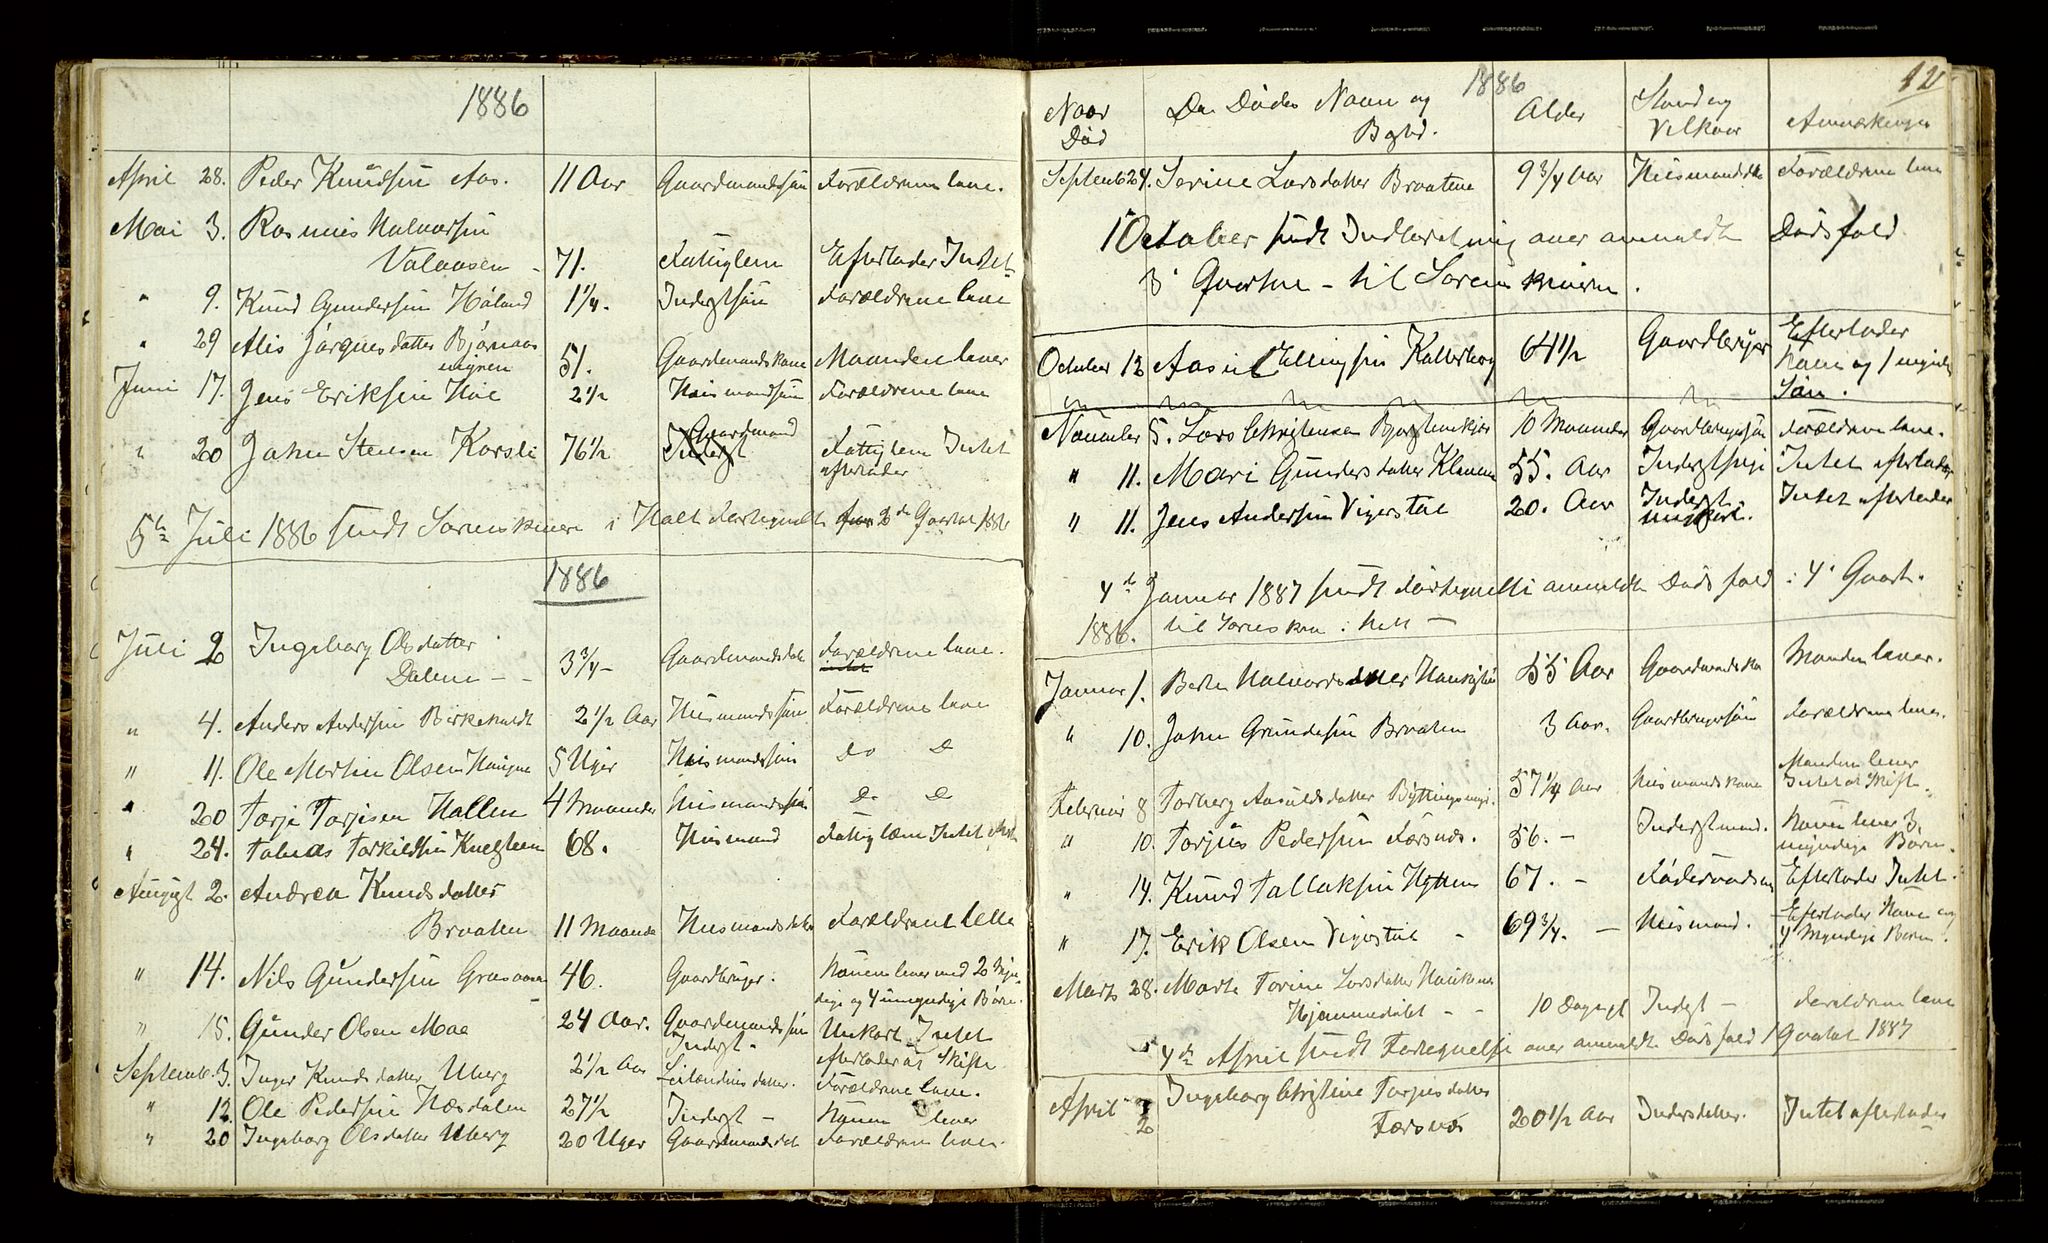 1886
April 28. Peder Knudsen Aas. 11 Aar Gaardmandssøn Forældrene leve.
Mai 3. Rasmus Halvorsen
Valaasen - 71. Fattiglem Efterlader Intet
" 9. Knud Gundersen Høland 1 1/4. Inderstsøn Forældrene leve
" 29 Alis Jørgensdatter Bjørnaas
myren 51. Gaardmandskone Manden lever
Juni 17. Jens Eriksen Hoie 2 1/2 Huusmandsøn Forældrene leve
" 20 John Stensen Korsli 76 1/2 Gaardmand Fattiglem Intet
efterlader
5te Juli 1886 sendt Sorenskriveren i Holt Fortegnelse for 2d Qvartal 1886
1886
Juli 2 Ingeborg Olsdatter
Dalene - - 3 3/4 - Gaardmandsdat Forældrene leve.
" 4. Anders Andersen Birkeholdt 2 1/2 Aar Huusmandssøn Forældrene leve
" 11. Ole Martin Olsen 5 Uger Huusmandssøn Do D
" 20 Torje Torjesen Hallen 4 Maaneder Huusmandssøn D. D
" 24. Tobias Torkildsen 68. Huusmand Fattiglem Intet
August 2. Andrea Knudsdatter
Braaten 11 Maaneder Huusmandsdatter Forældrene leve
" 14. Nils Gundersen Grasaasen 46. Gaardbruger. Konen lever med 2 myn
dige og 4 umyndige Børn.
" 15. Gunder Olsen Moe 24 Aar. Gaardmandssøn Ugift Intet
Inderst - efterlader at Skifte
Septemb. 3. Inger Knudsdatter Uberg 2 1/2 Aar Leilændingsdatter. Forældrene leve.
" 12 Ole Pedersen Næsdalen 27 1/2 Inderst - Konen lever
" 20 Ingeborg Olsdatter Uberg 20 Uger Gaardmandsdat Forældrene leve.
1886 12
Naar Den Dødes Navn og Alder Stand og Anmærkninger
Død Bopæl. Vilkaar
Septemb 24. Sorine Larsdatter Braatene 9 3/4 Aar Huusmandsda Forældrene leve
1 October sendt Indberetning over anmeldte Dødsfald
3 Qvartal - til Sorenskriveren.
October 12 Aasul Ellingsen Kateraas 64 1/2 Gaardbruger Efterlader
Kone og 1 myndig
Søn.
November 5. Lars Christensen 10 Maaneder Gaardbrugersøn Forældrene leve.
" 11. Mari Gundersdatter 55. Aar Inderstpige Intet efterlader
" 11. Jens Andersen Vigerstøl 20. Aar Inderst Intet efterlader
ungkarl.
4de Januar 1887 sendt Fortegnelse anmeldte Dødsfald i 4' Qvart.
1886. til Sorenskr. i Holt -
Januar 1. Berte Halvorsdatter 55 Aar Gaardmandsko Manden lever.
" 10. John Gundersen Braaten 3 Aar. Gaardbrugersøn Forældrene leve.
Februar 8 Torberg Aasulsdatter 57 1/4 Aar Huusmandskone Manden lever
Intet at Skifte.
" 10. Torjus Pedersen Færsnæs. 56. - Inderstmand. Konen lever 3
myndige Børn.
" 14. Knud Tallaksen 67. - Føderaadsm Efterlader Intet.
" 17. Erik Olsen Vigerstøl - 69 3/4. - Huusmand. Efterlader Kone og
4 Myndige Børn.
Marts 28. Marte Torine Larsdatter
Hjemmedalet - - 10 Døgn Inderst - Forældrene leve
4de April sendt Fortegnelse over anmeldte Dødsfald 1 Qvartal 1887
April 2 Ingeborg Christine Torjusdatter
Færsnæs 20 1/2 Aar Indersdatter. Intet efterlader